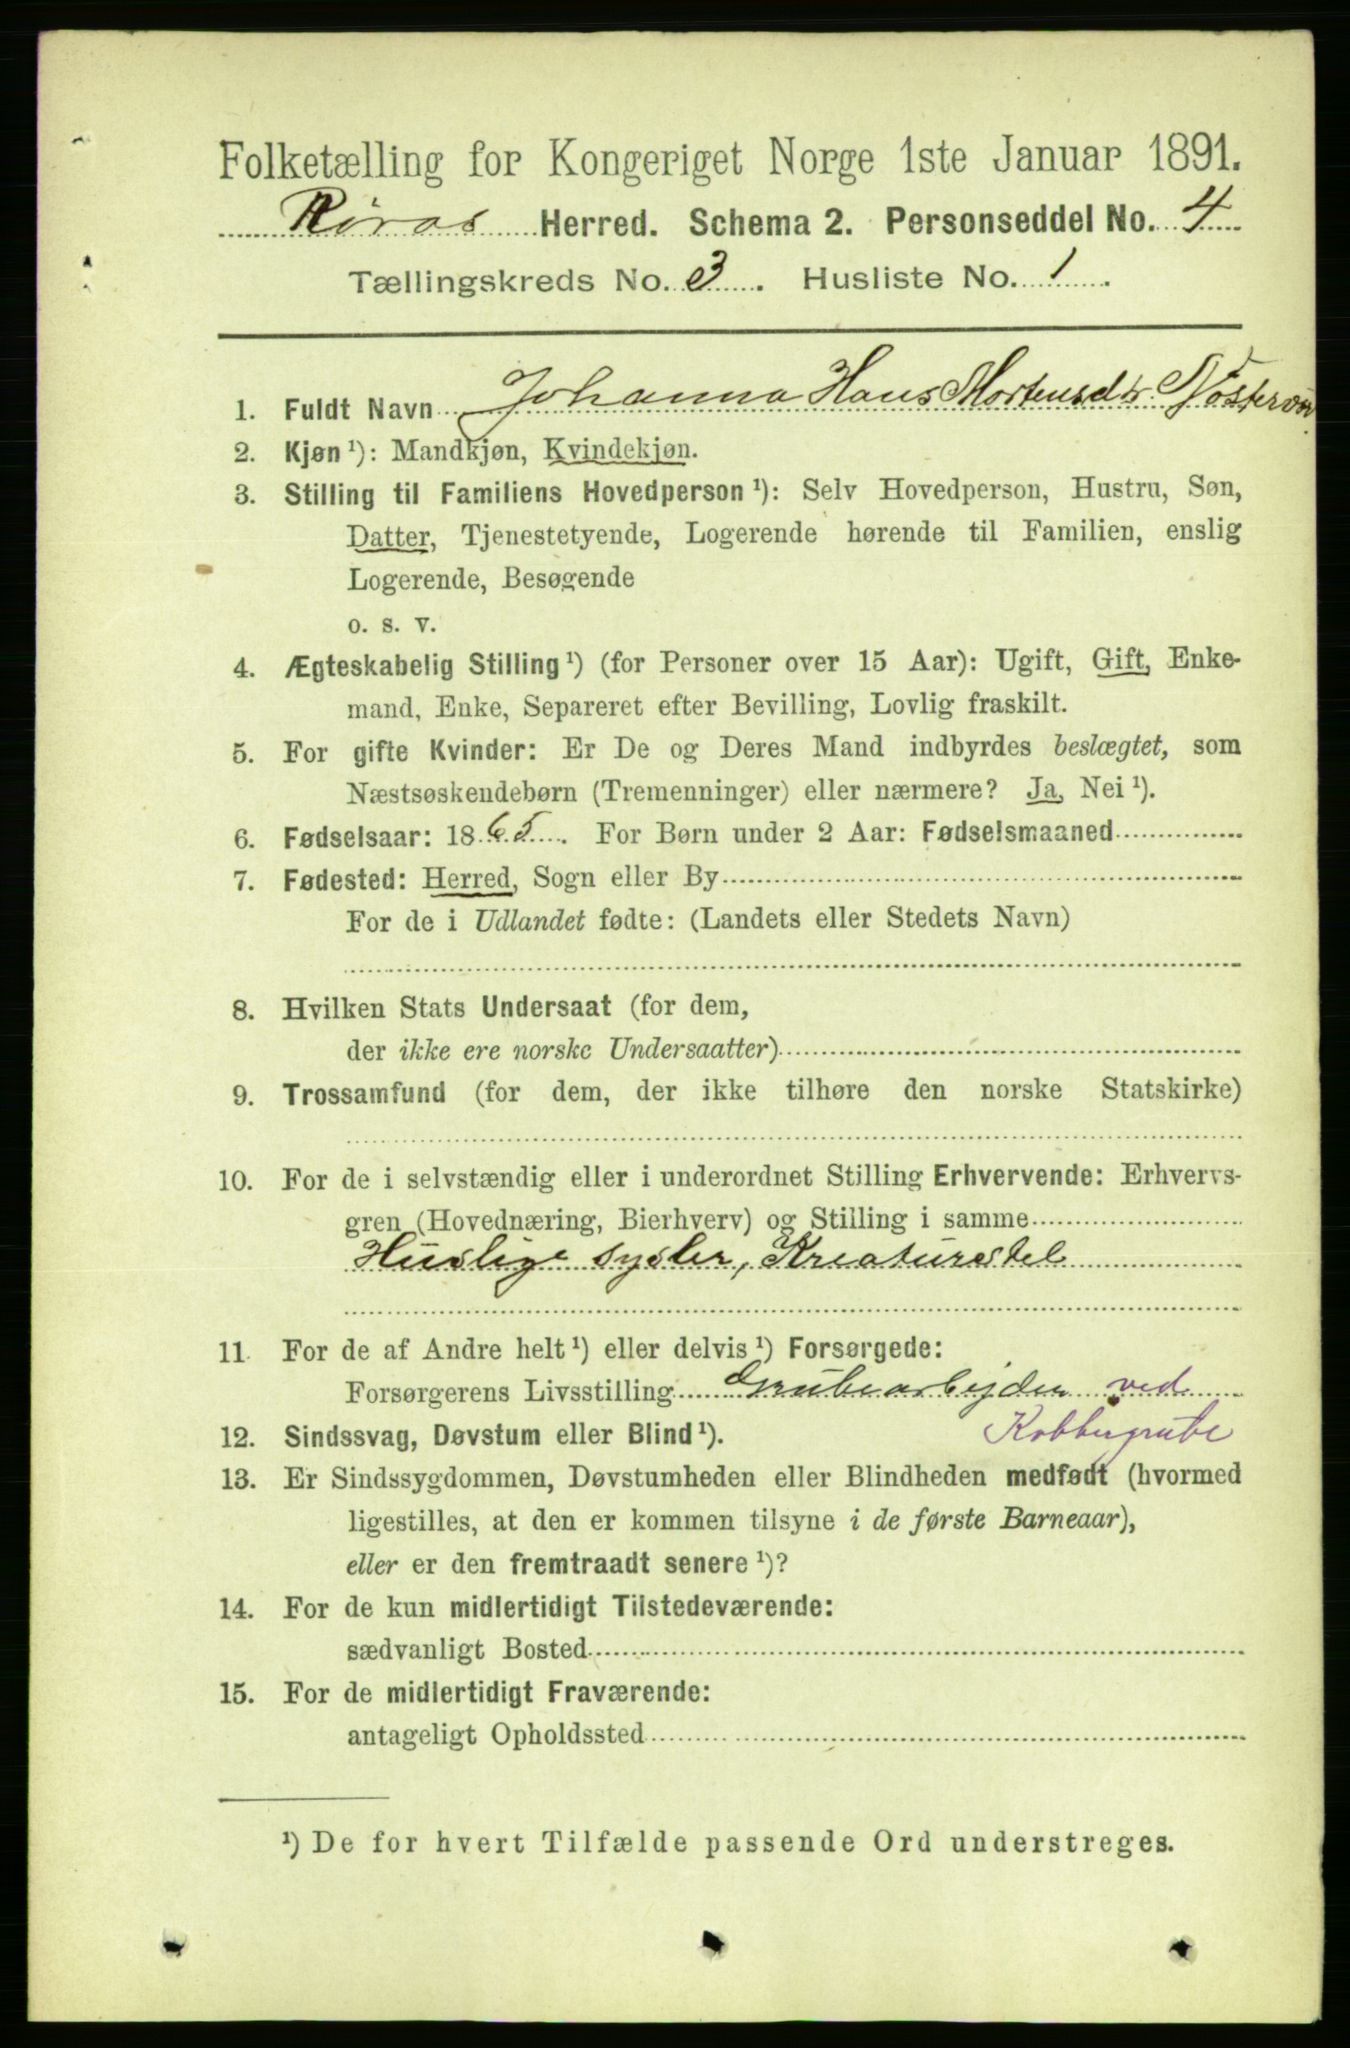 Folketælling for Kongeriget Norge 1ste Januar 1891.
Røros Herred. Schema 2. Personseddel No. 4
Tællingskreds No. 3. Husliste No. 1.
1. Fuldt Navn Johanna Hans Mortensdtr.
2. Kjøn ¹): Mandkjøn, Kvindekjøn.
3. Stilling til Familiens Hovedperson ¹): Selv Hovedperson, Hustru, Søn,
Datter, Tjenestetyende, Logerende hørende til Familien, enslig
Logerende, Besøgende
o. s. v.
4. Ægteskabelig Stilling ¹) (for Personer over 15 Aar): Ugift, Gift, Enke-
mand, Enke, Separeret efter Bevilling, Lovlig fraskilt.
5. For gifte Kvinder: Er De og Deres Mand indbyrdes beslægtet, som
Næstsøskendebørn (Tremenninger) eller nærmere? Ja, Nei ¹).
6. Fødselsaar: 1865. For Børn under 2 Aar: Fødselsmaaned
7. Fødested: Herred, Sogn eller By
For de i Udlandet fødte: (Landets eller Stedets Navn)
8. Hvilken Stats Undersaat (for dem,
der ikke ere norske Undersaatter)
9. Trossamfund (for dem, der ikke tilhøre den norske Statskirke)
10. For de i selvstændig eller i underordnet Stilling Erhvervende: Erhvervs-
gren (Hovednæring, Bierhverv) og Stilling i samme
Huslige sysler, Kreaturstel
11 For de af Andre helt ¹) eller delvis ¹) Forsørgede:
Forsørgerens Livsstilling Grubearbejder ved
Kobbergrube
12. Sindssvag, Døvstum eller Blind ¹).
13. Er Sindssygdommen, Døvstumheden eller Blindheden medfødt (hvormed
ligestilles, at den er kommen tilsyne i de første Barneaar),
eller er den fremtraadt senere ¹)?
14. For de kun midlertidigt Tilstedeværende:
sædvanligt Bosted
15. For de midlertidigt Fraværende:
antageligt Opholdssted
¹) De for hvert Tilfælde passende Ord understreges.